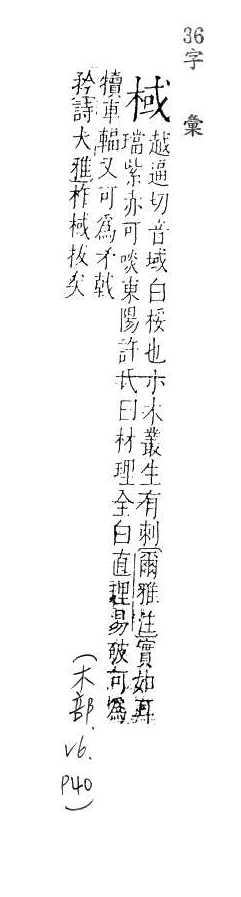 36字 彙
棫
越逼切音域白桵也小木叢生有刺爾雅注實如耳
璫紫赤可啖東陽許氏曰材理全白直理易破可為
犢車輻又可為矛戟
矜詩大雅柞棫拔矣
(木部. v6. P40)